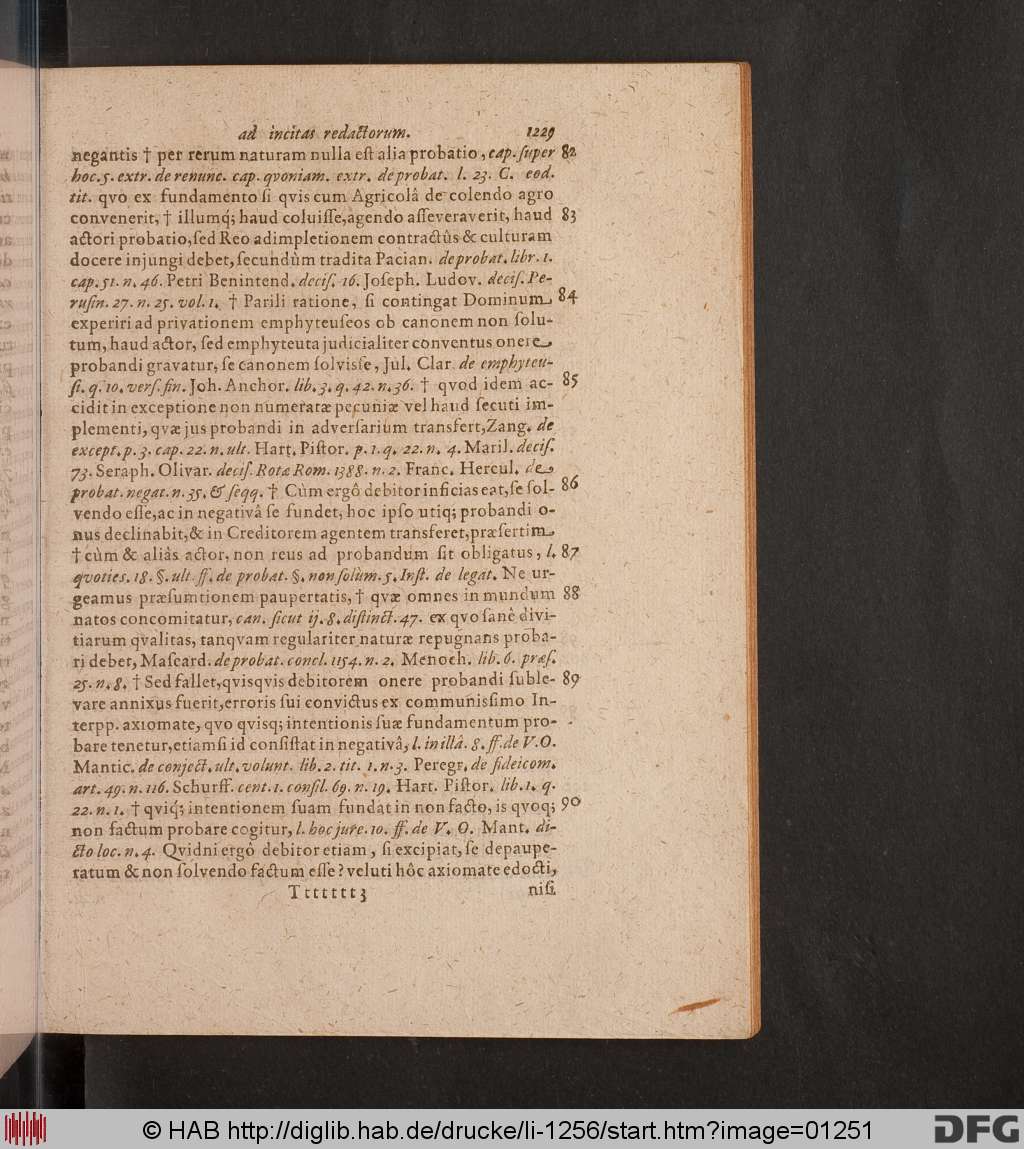 ad incitas redactorum. 1229
negantis † per rerum naturam nulla eſt alia probatio, cap. ſuper 82
hoc. 5. extr. de renunc. cap. qvoniam. extr. de probat. l. 23. C. eod.
tit. qvo ex fundamento ſi qvis cum Agricolâ de colendo agro
convenerit, † illumq́; haud coluiſſe, agendo aſſeveraverit, haud 83
actori probatio, ſed Reo adimpletionem contractûs & culturam
docere injungi debet, ſecundùm tradita Pacian. de probat. libr. 1.
cap. 51. n. 46. Petri Benintend. deciſ. 16. Joſeph. Ludov. deciſ. Pe-
ruſin. 27. n. 25. vol. 1. † Parili ratione, ſi contingat Dominum 84
experiri ad privationem emphyteuſeos ob canonem non ſolu-
tum, haud actor, ſed emphyteuta judicialiter conventus onere
probandi gravatur, ſe canonem ſolviſſe, Jul. Clar. de emphyteu-
ſi. q. 10. verſ. fin. Joh. Anchor. lib. 3. q. 42. n. 36. † qvod idem ac- 85
cidit in exceptione non numeratæ pecuniæ vel haud ſecuti im-
plementi, qvæ jus probandi in adverſarium transfert, Zang. de
except. p. 3. cap. 22. n. ult. Hart. Piſtor. p. 1. q. 22. n. 4. Maril. deciſ.
73. Seraph. Olivar. deciſ. Rotæ Rom. 1388. n. 2. Franc. Hercul. de
probat. negat. n. 35. & ſeqq. † Cùm ergô debitor inficias eat, ſe ſol- 86
vendo eſſe, ac in negativâ ſe fundet, hoc ipſo utiq; probandi o-
nus declinabit, & in Creditorem agentem transferet, præſertim
† cùm & aliàs actor, non reus ad probandum ſit obligatus, l. 87
qvoties. 18. §. ult. ff. de probat. §. non ſolùm. 5. Inſt. de legat. Ne ur-
geamus præſumtionem paupertatis, † qvæ omnes in mundum 88
natos concomitatur, can. ſicut ij. 8. diſtinct. 47. ex qvo ſanè divi-
tiarum qvalitas, tanqvam regulariter naturæ repugnans proba-
ri debet, Maſcard. de probat. concl. 1154. n. 2. Menoch. lib. 6. præſ.
25. n. 8. † Sed fallet, qvisqvis debitorem onere probandi ſuble- 89
vare annixus fuerit, erroris ſui convictus ex communiſſimo In-
terpp. axiomate, qvo qvisq; intentionis ſuæ fundamentum pro-
bare tenetur, etiamſi id conſiſtat in negativâ, l. in illâ. 8. ff. de V. O.
Mantic. de conject. ult. volunt. lib. 2. tit. 1. n. 3. Peregr. de fideicom.
art. 49. n. 116. Schurff. cent. 1. conſil. 69. n. 19. Hart. Piſtor. lib. 1. q.
22. n. 1. † qviq́; intentionem ſuam fundat in non facto, is qvoq; 90
non factum probare cogitur, l. hoc jure. 10. ff. de V. O. Mant. di-
cto loc. n. 4. Qvidni ergô debitor etiam, ſi excipiat, ſe depaupe-
ratum & non ſolvendo factum eſſe? veluti hôc axiomate edocti,
Ttttttt 3 niſi
© HAB http://diglib.hab.de/drucke/li-1256/start.htm?image=01251
DFG